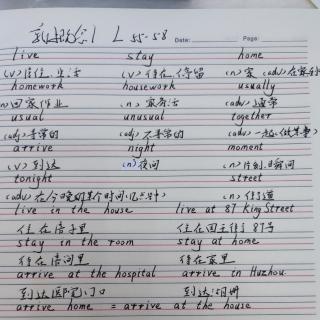 新概念1 L 55-58 Date: Page:
live stay home
(v)居住、生活 (v)待在、停留 (n)家 (adv)在家
homework housework usually
(n)回家作业 (n)家务活 (adv)通常
usual unusual together
(adj)寻常的 (adj)不寻常的 (adv)一起
arrive night moment
(v)到达 (n)夜间 (n)片刻、瞬间
tonight street
(adv)在今日晚某个时间 (n)街道
live in the house live at 87 King Street
住在房子里 住在国王街87号
stay in the room stay at home
待在房间里 待在家里
arrive at the hospital arrive in Huzhou
到达医院门口 到达湖州
arrive home = arrive at the house